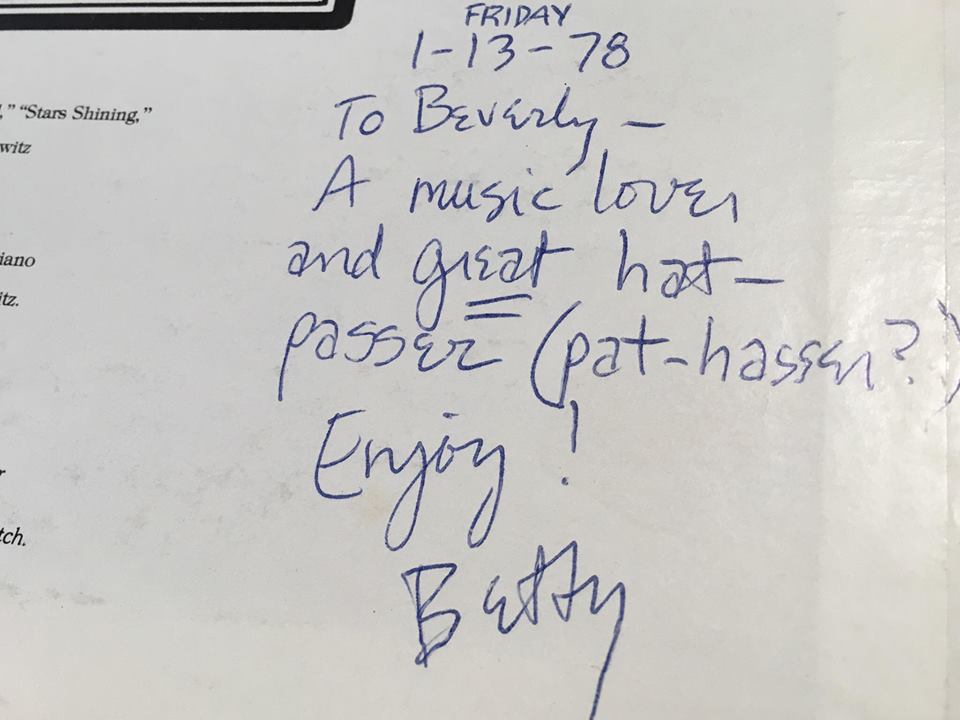 FRIDAY
1-13-78
To Beverly —
A music lover
and great hat-
passer (pat-hasser?)
Enjoy!
Betty
," "Stars Shining,"
witz
iano
itz.
r
tch.